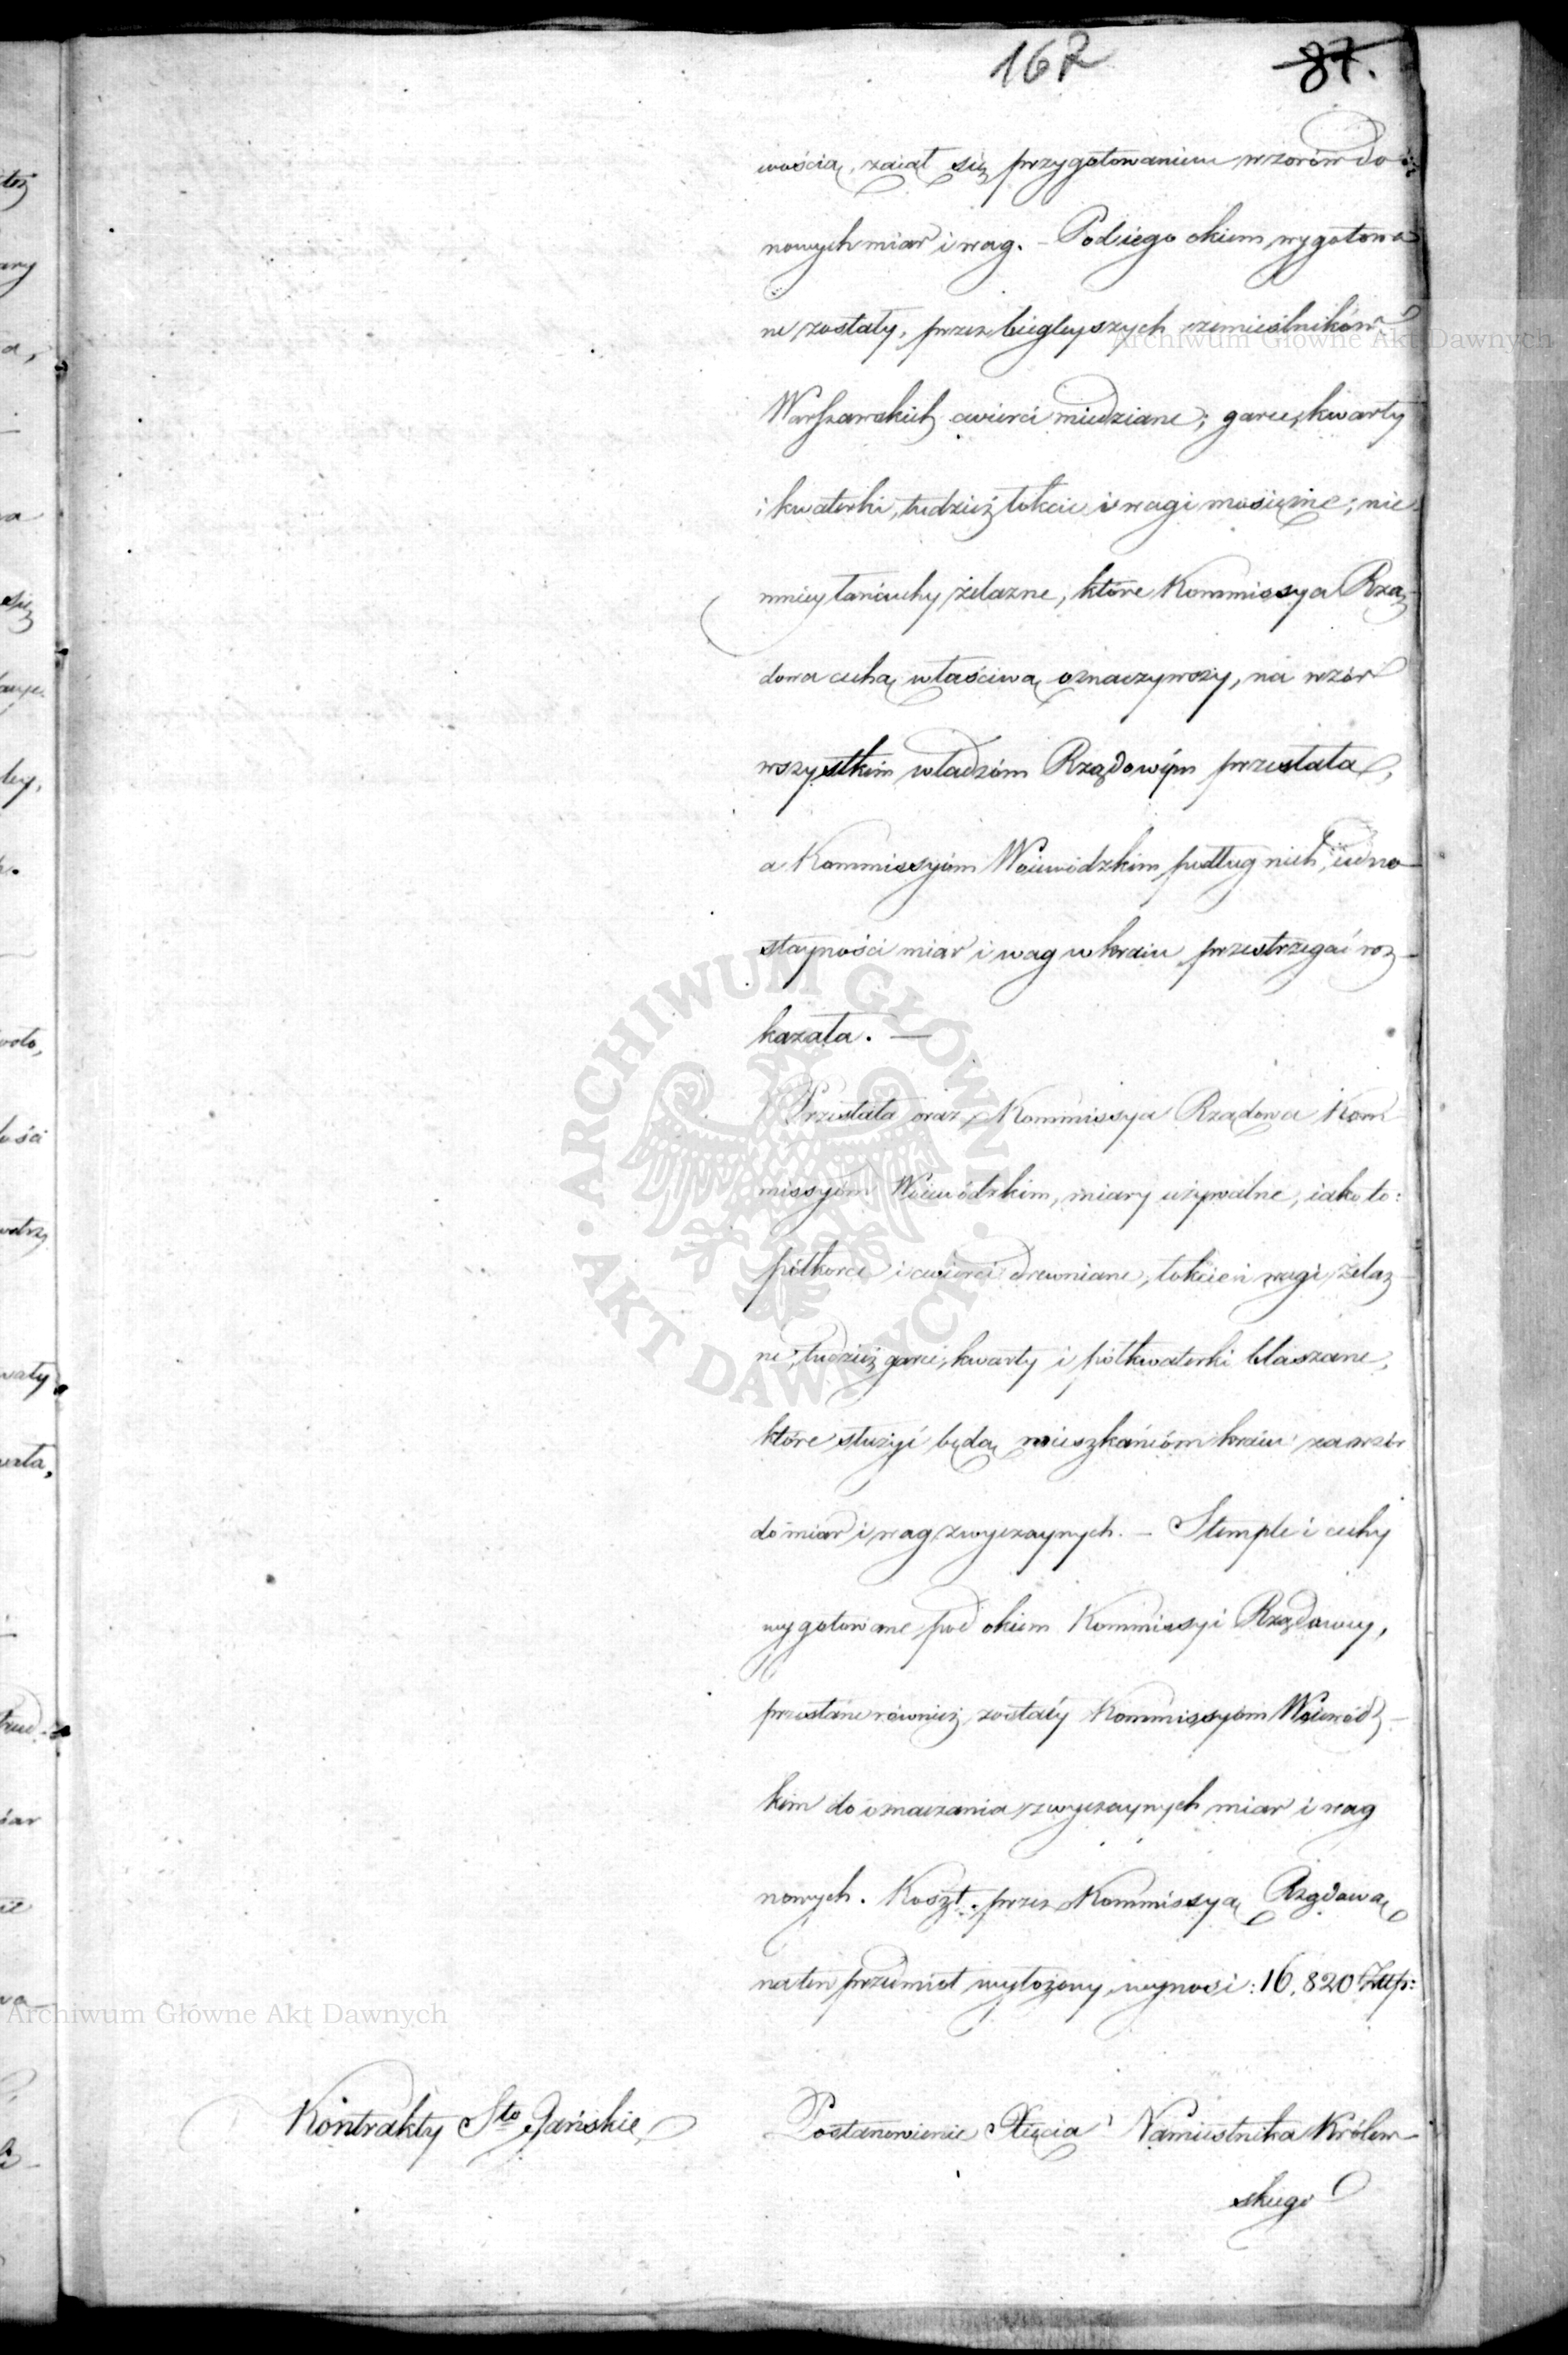 162 87.
wością, zaiął się przygotowaniem wzorów do
nowych miar i wag. – Pod iego okiem wygotowa
ne zostały, przez biegleyszych rzemieślników
Warszawskich cwierci miedziane; garce, kwarty
i kwaterki, tudzież łokcie i wagi mosiężne; nie
mniey łańcuchy żelazne, które Kommissya Rzą-
dowa cechą właściwą oznaczywszy, na wzór
wszystkim władzóm Rządowym przesłała,
a Kommissyióm Woiewódzkim podług nich, iedno-
stayności miar i wag w kraiu przestrzegać roz-
kazała. —
Przesłała oraz Kommissya Rządowa Kom-
missyióm Woiewódzkim, miary używalne, iako to:
półkorce i cwierci drewniane, łokcie i wagi żelaz-
ne, tudzież garce, kwarty i półkwaterki blaszane,
które służyć będą mieszkańcóm kraiu za wzór
do miar i wag zwyczaynych. – Stemple i cechy
wygotowane pod okiem Kommissyi Rządowey,
przesłane również zostały Kommissyióm Woiewódz-
kim do oznaczania zwyczaynych miar i wag
nowych. Koszt przez Kommissyą Rządową
na ten przedmiot wyłożony, wynosi: 16,820 Złłp:
Kontrakty Sto Jańskie
Postanowienie Xięcia Namiestnika Królew-
skiego
Archiwum Główne Akt Dawnych
ARCHIWUM GŁÓWNE AKT DAWNYCH
Archiwum Główne Akt Dawnych